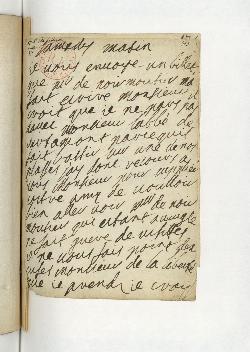 samedy matin
je vous envoye un billet
que mr de noirmoutier ma
fait ecrire Monsieur il
croit que je ne puis pas
avec Monsieur labbé de
faire bastir sur une de nos
places jay donc recours a
vous Monsieur pour supplier
votre amy de vouloir
bien aller voir mr de noir
moutier qui estant aveugle
ne fait guere de visites
je ne vous fais point dex
cuses Monsieur de la liberté
que je prends je crois